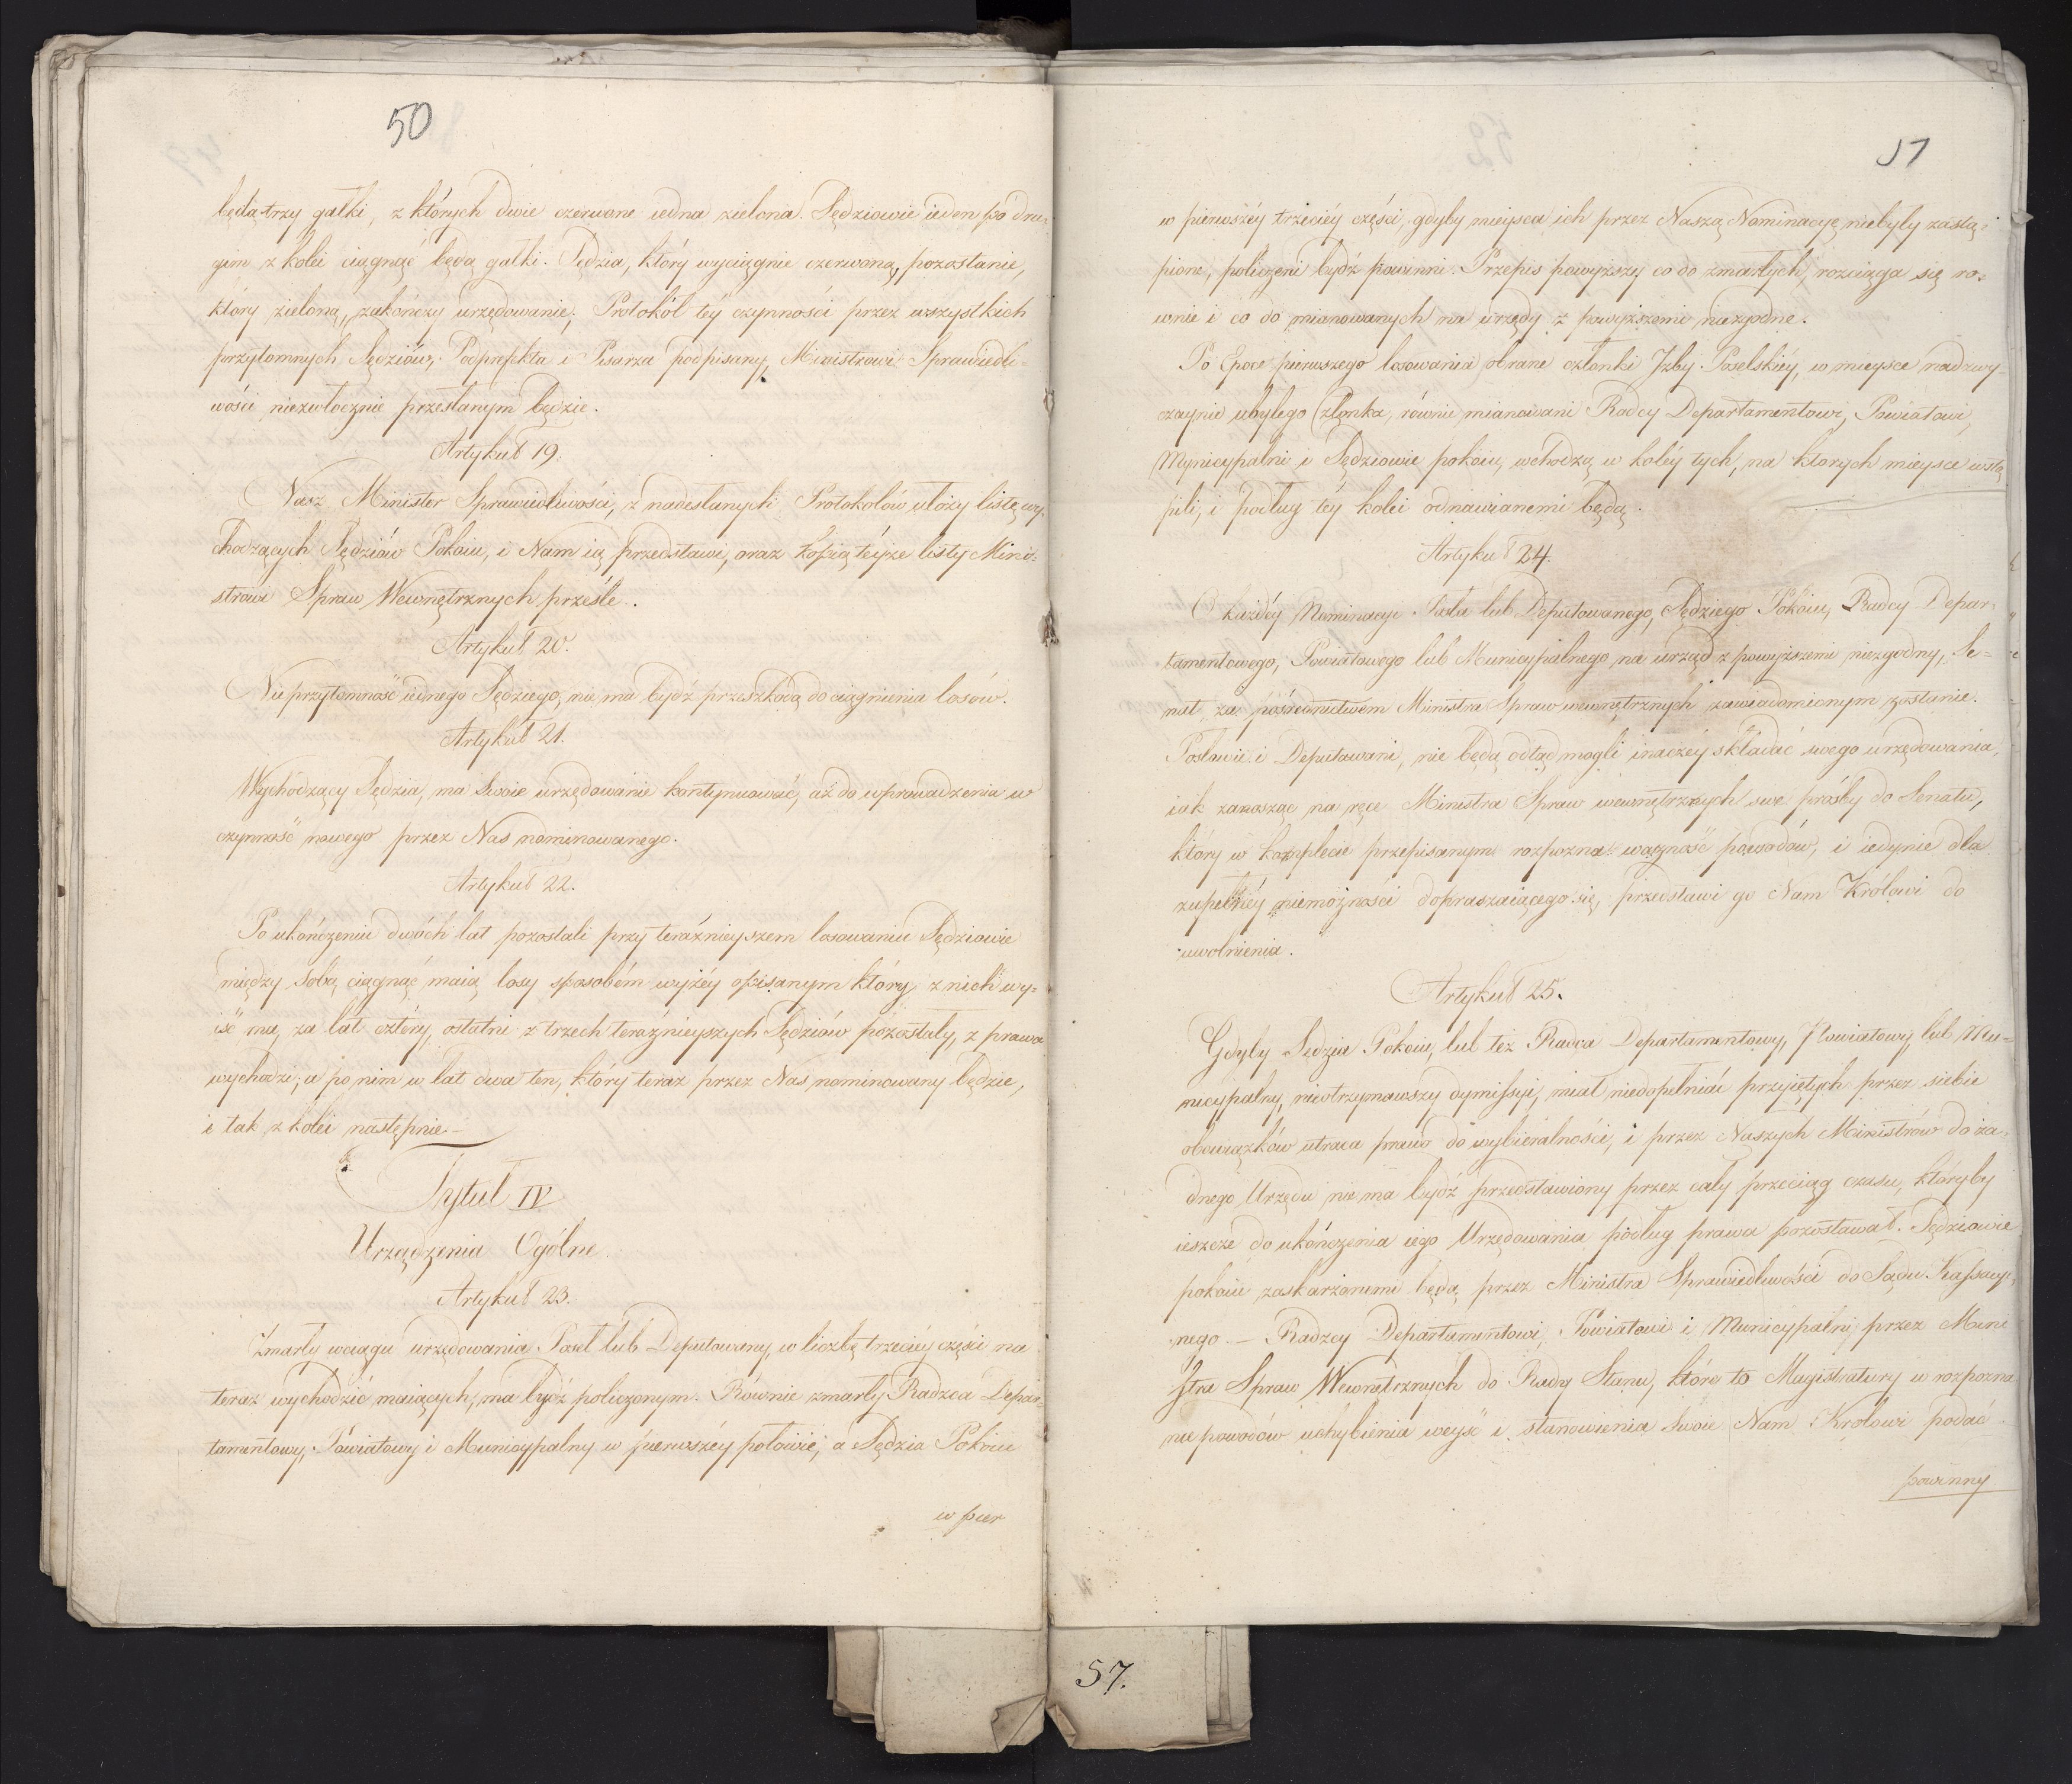 50
będą trzy gałki, z których dwie czerwone iedna zielona. Sędziowie ieden po dru-
gim z kolei ciągnąć będą gałki. Sędzia, który wyciągnie czerwoną, pozostanie,
który zieloną, zakończy urzędowanie; Protokół téy czynności przez wszystkich
przytomnych Sędziów, Podprefekta i Pisarza podpisany, Ministrowi Sprawiedli-
wości niezwłocznie przesłanym będzie.
Artykuł 19.
Nasz Minister Sprawiedliwości, z nadesłanych Protokołów ułoży listę wy-
chodzących Sędziów Pokoiu, i Nam ią przedstawi, oraz kopią téyże listy Mini-
strowi Spraw Wewnętrznych prześle.
Artykuł 20.
Nieprzytomność iednego Sędziego, nie ma bydź przeszkodą do ciągnienia losów.
Artykuł 21.
Wychodzący Sędzia, ma swoie urzędowanie kontynuować, aż do wprowadzenia w
czynność nowego przez Nas nominowanego.
Artykuł 22.
Po ukończeniu dwóch lat pozostali przy teraźnieyszem losowaniu Sędziowie
między sobą ciągnąć maią losy sposobém wyżéy opisanym który z nich wy-
iść ma, za lat cztéry, ostatni z trzech teraźnieyszych Sędziów pozostały, z prawa
wychodzi, a po nim w lat dwa ten, który teraz przez Nas nominowany będzie,
i tak z kolei następnie.-
Tytuł IV
Urządzenia Ogólne.
Artykuł 23.
Zmarły wciągu urzędowania Poseł lub Deputowany, w liczbę trzeciéy części na
teraz wychodzić maiących, ma bydź policzonym. Równie zmarły Radzca Depar-
tamentowy, Powiatowy i Municypalny w pierwszéy połowie, a Sędzia Pokoiu
w pier
51
w pierwszéy trzeciéy części, gdyby mieysca ich przez Naszą Nominacyę niebyły zastą-
pione, policzeni bydź powinni. Przepis powyższy co do zmarłych, rozciąga się ró-
wnie i co do mianowanych na urzędy z powyższemi niezgodne.
Po Epoce pierwszego losowania obrane członki Jzby Poselskiéy, w mieysce nadzwy-
czaynie ubyłego Członka, równie mianowani Radcy Departamentowi, Powiatowi,
Mynicypalni i Sędziowie pokoiu, wchodzą w koléy tych, na ktorych mieysce wstą-
pili, i podług téy kolei odnawianemi będą.
Artykuł 24.
O każdéy Nominacyi Posła lub Deputowanego, Sędziego Pokoiu, Radcy Depar-
tamentowego, Powiatowego lub Municypalnego na urząd z powyższemi niezgodny, Se-
nat, za pośrednictwém Ministra Spraw wewnętrznych zawiadomionym zostanie.
Posłowie i Deputowani, nie będą odtąd mogli inaczéy składać swego urzędowania,
iak zanosząc na ręce Ministra Spraw wewnętrznych swe prośby do Senatu,
który w komplecie przepisanym rozpozna ważność powodów, i iedynie dla
zupełnéy niemożności dopraszaiącego się, przedstawi go Nam Królowi do
uwolnienia.
Artykuł 25.
Gdyby Sedzia Pokoiu, lub też Radca Departamentowy, Powiatowy, lub Mu-
nicypalny, nieotrzymawszy dymissyi, miał niedopełniać przyiętych przez siebie
obowiązków utraca prawo do wybieralności, i przez Naszych Ministrów do ża-
dnego Urzędu nie ma bydź przedstawiony przez cały przeciąg czasu, któryby
ieszcze do ukończenia iego Urzędowania podług prawa pozostawał. Sędziowie
pokoiu zaskarżonemi będą przez Ministra Sprawiedliwości do Sądu Kassacyi-
nego. — Radzcy Departamentowi, Powiatowi i Municypalni przez Mini
stra Spraw Wewnętrznych do Rady Stanu, które to Magistratury w rozpozna
nie powodów uchybienia weyść i stanowienia swoie Nam Królowi podać
powinny
57.